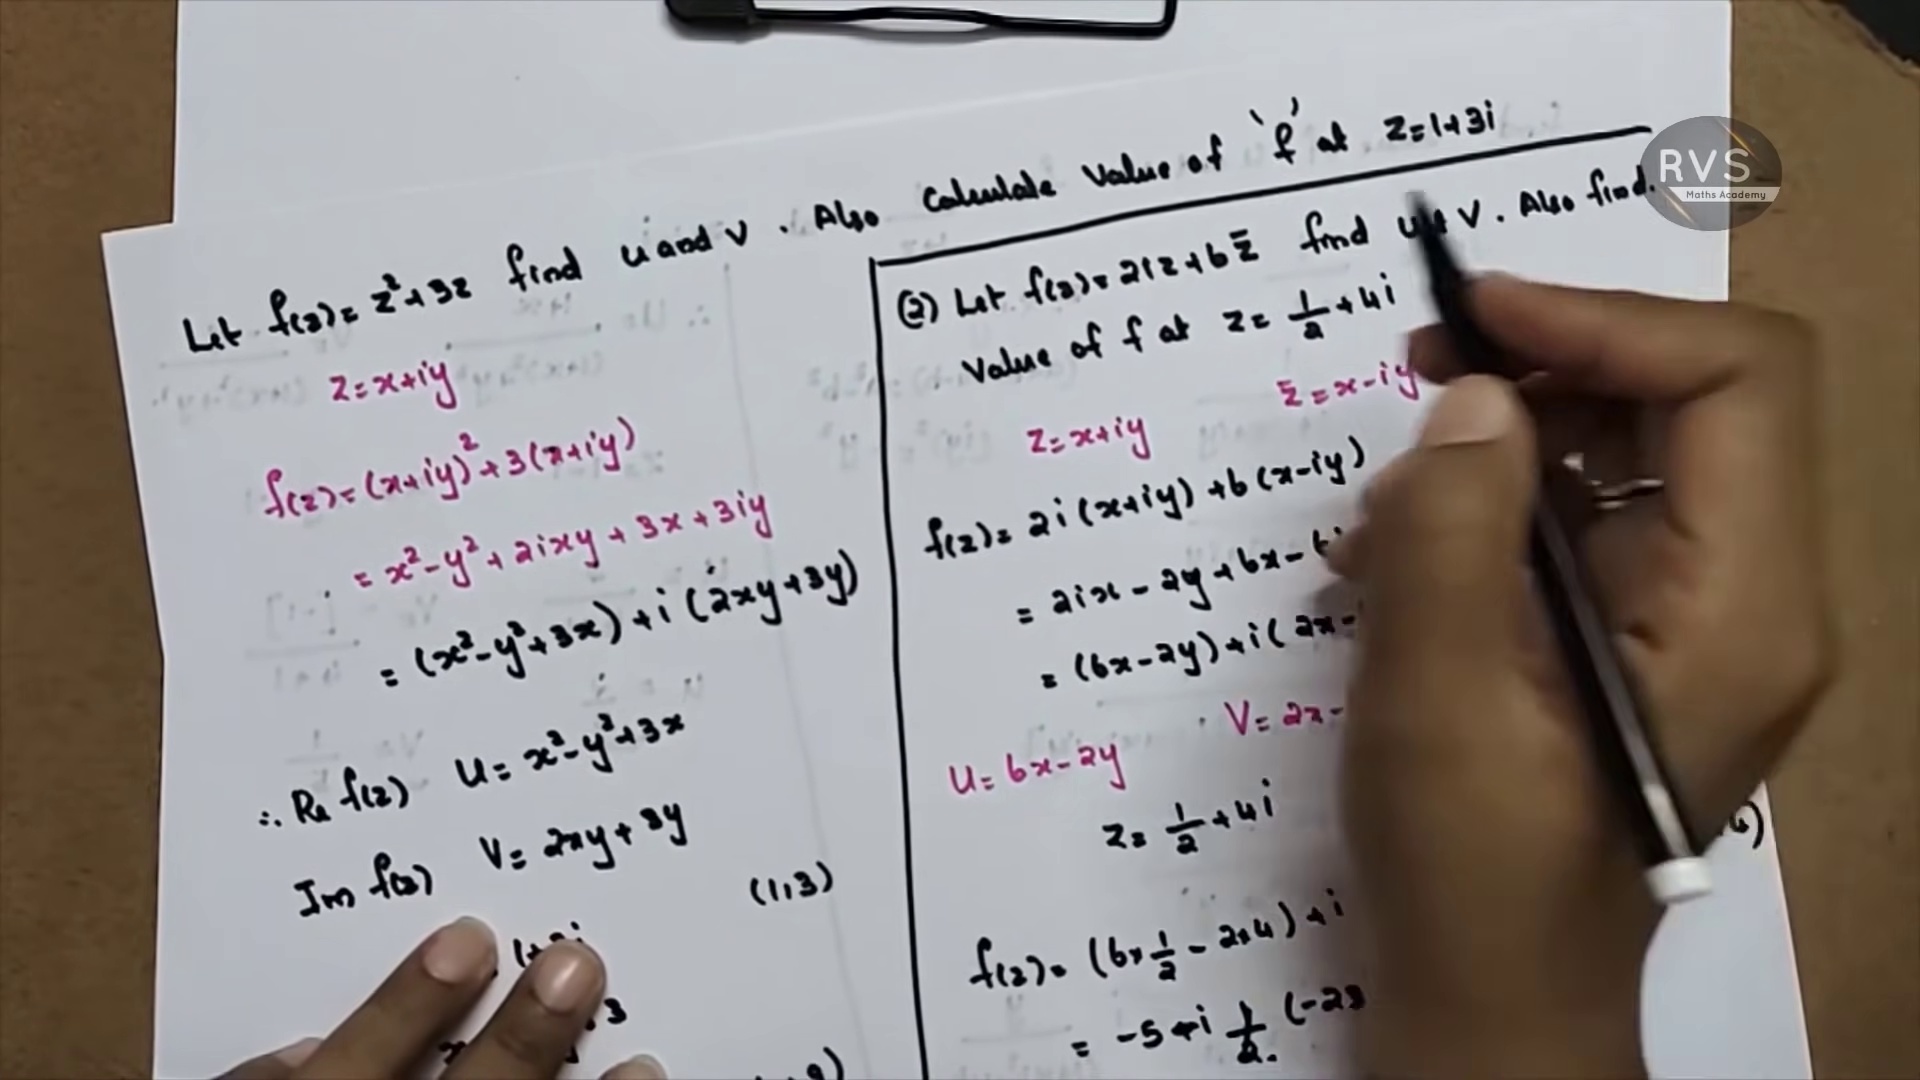 Let f(z) = z² + 3z find u and v . Also calculate value of 'f' at z = 1+3i
z = x+iy
f(z) = (x+iy)² + 3(x+iy)
= x² - y² + 2ixy + 3x + 3iy
= (x² - y² + 3x) + i (2xy + 3y)
∴ Re f(z) u = x² - y² + 3x
Im f(z) v = 2xy + 3y
(1,3)
(2) Let f(z) = 2iz + 6z̄ find v . Also find.
value of f at z = 1/2 + 4i
z = x+iy z̄ = x-iy
f(z) = 2i (x+iy) + 6 (x-iy)
= 2ix - 2y + 6x -
= (6x - 2y) + i ( 2x -
u = 6x - 2y v = 2x -
z = 1/2 + 4i
f(z) = (6× 1/2 - 2×4) + i
= -5 + i 1/2 (-23
RVS
Maths Academy